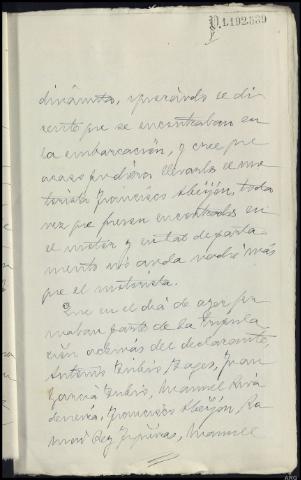 P.1.492.539
dinamita, ignorándo el di-
cente que se encontraban en
la embarcación, y cree que
acaso pudiera llevarlo el mo-
torista Francisco Abeijón, toda
vez que fueron encontrados en
el motor y en tal departa-
mento nó anda nadie más
que el motorista.
Que en el dia de ayer for-
maban parte de la tripula-
ción además del declarante,
Antonio Rubio Lages, Juan
García Rubio, Manuel Riva-
deneira, Francisco Abeijón, Ra-
mon Rey Piñeiras, Manuel